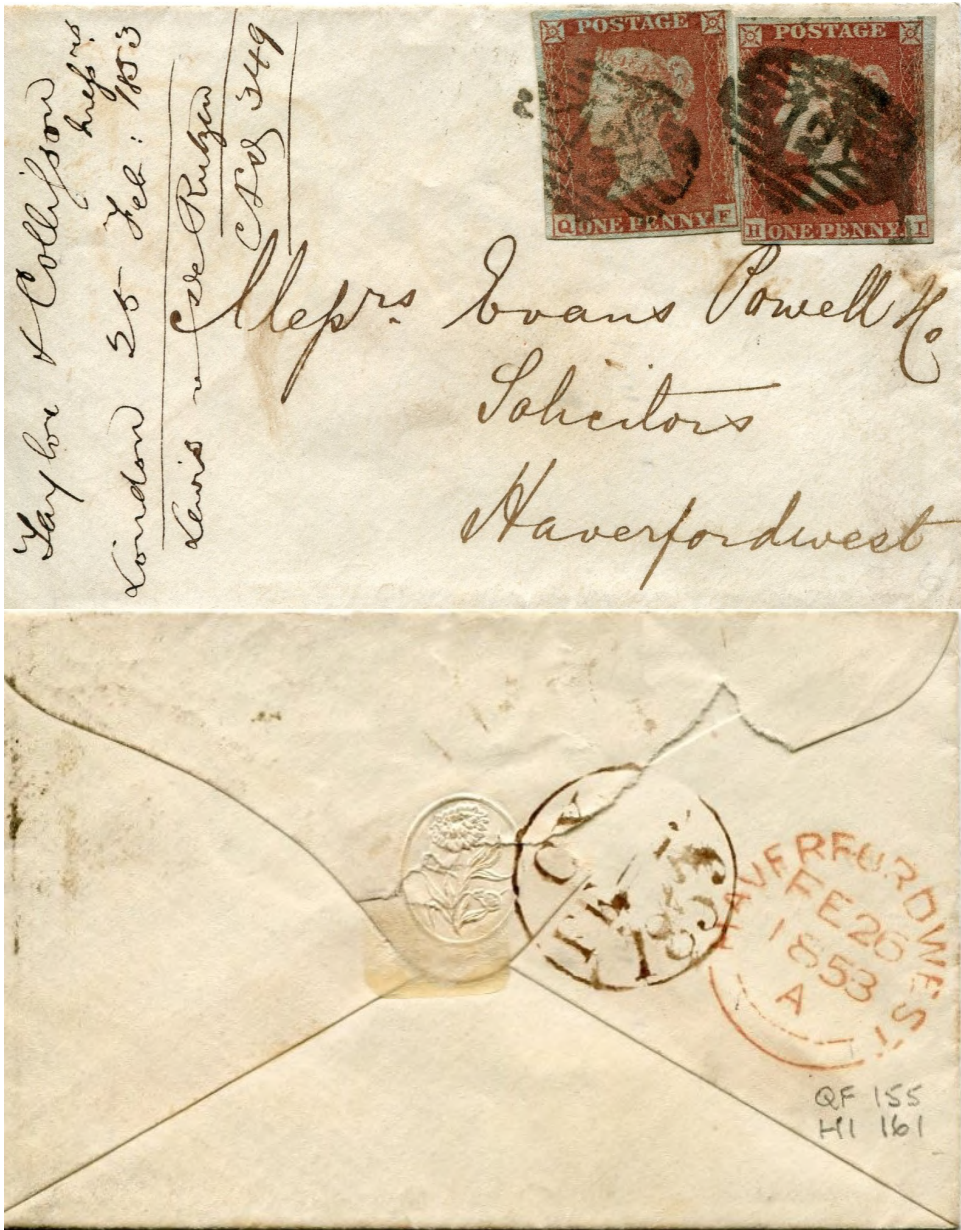 Taylor & Collisson
London 25 Feb: 1853
Lewis v De Rutzen
349
POSTAGE
Q ONE PENNY F
POSTAGE
H ONE PENNY I
Messrs Evans Powell & Co
Solicitors
Haverfordwest
FE 25
1853
HAVERFORDWEST
FE 26
1853
A
QF 155
HI 161